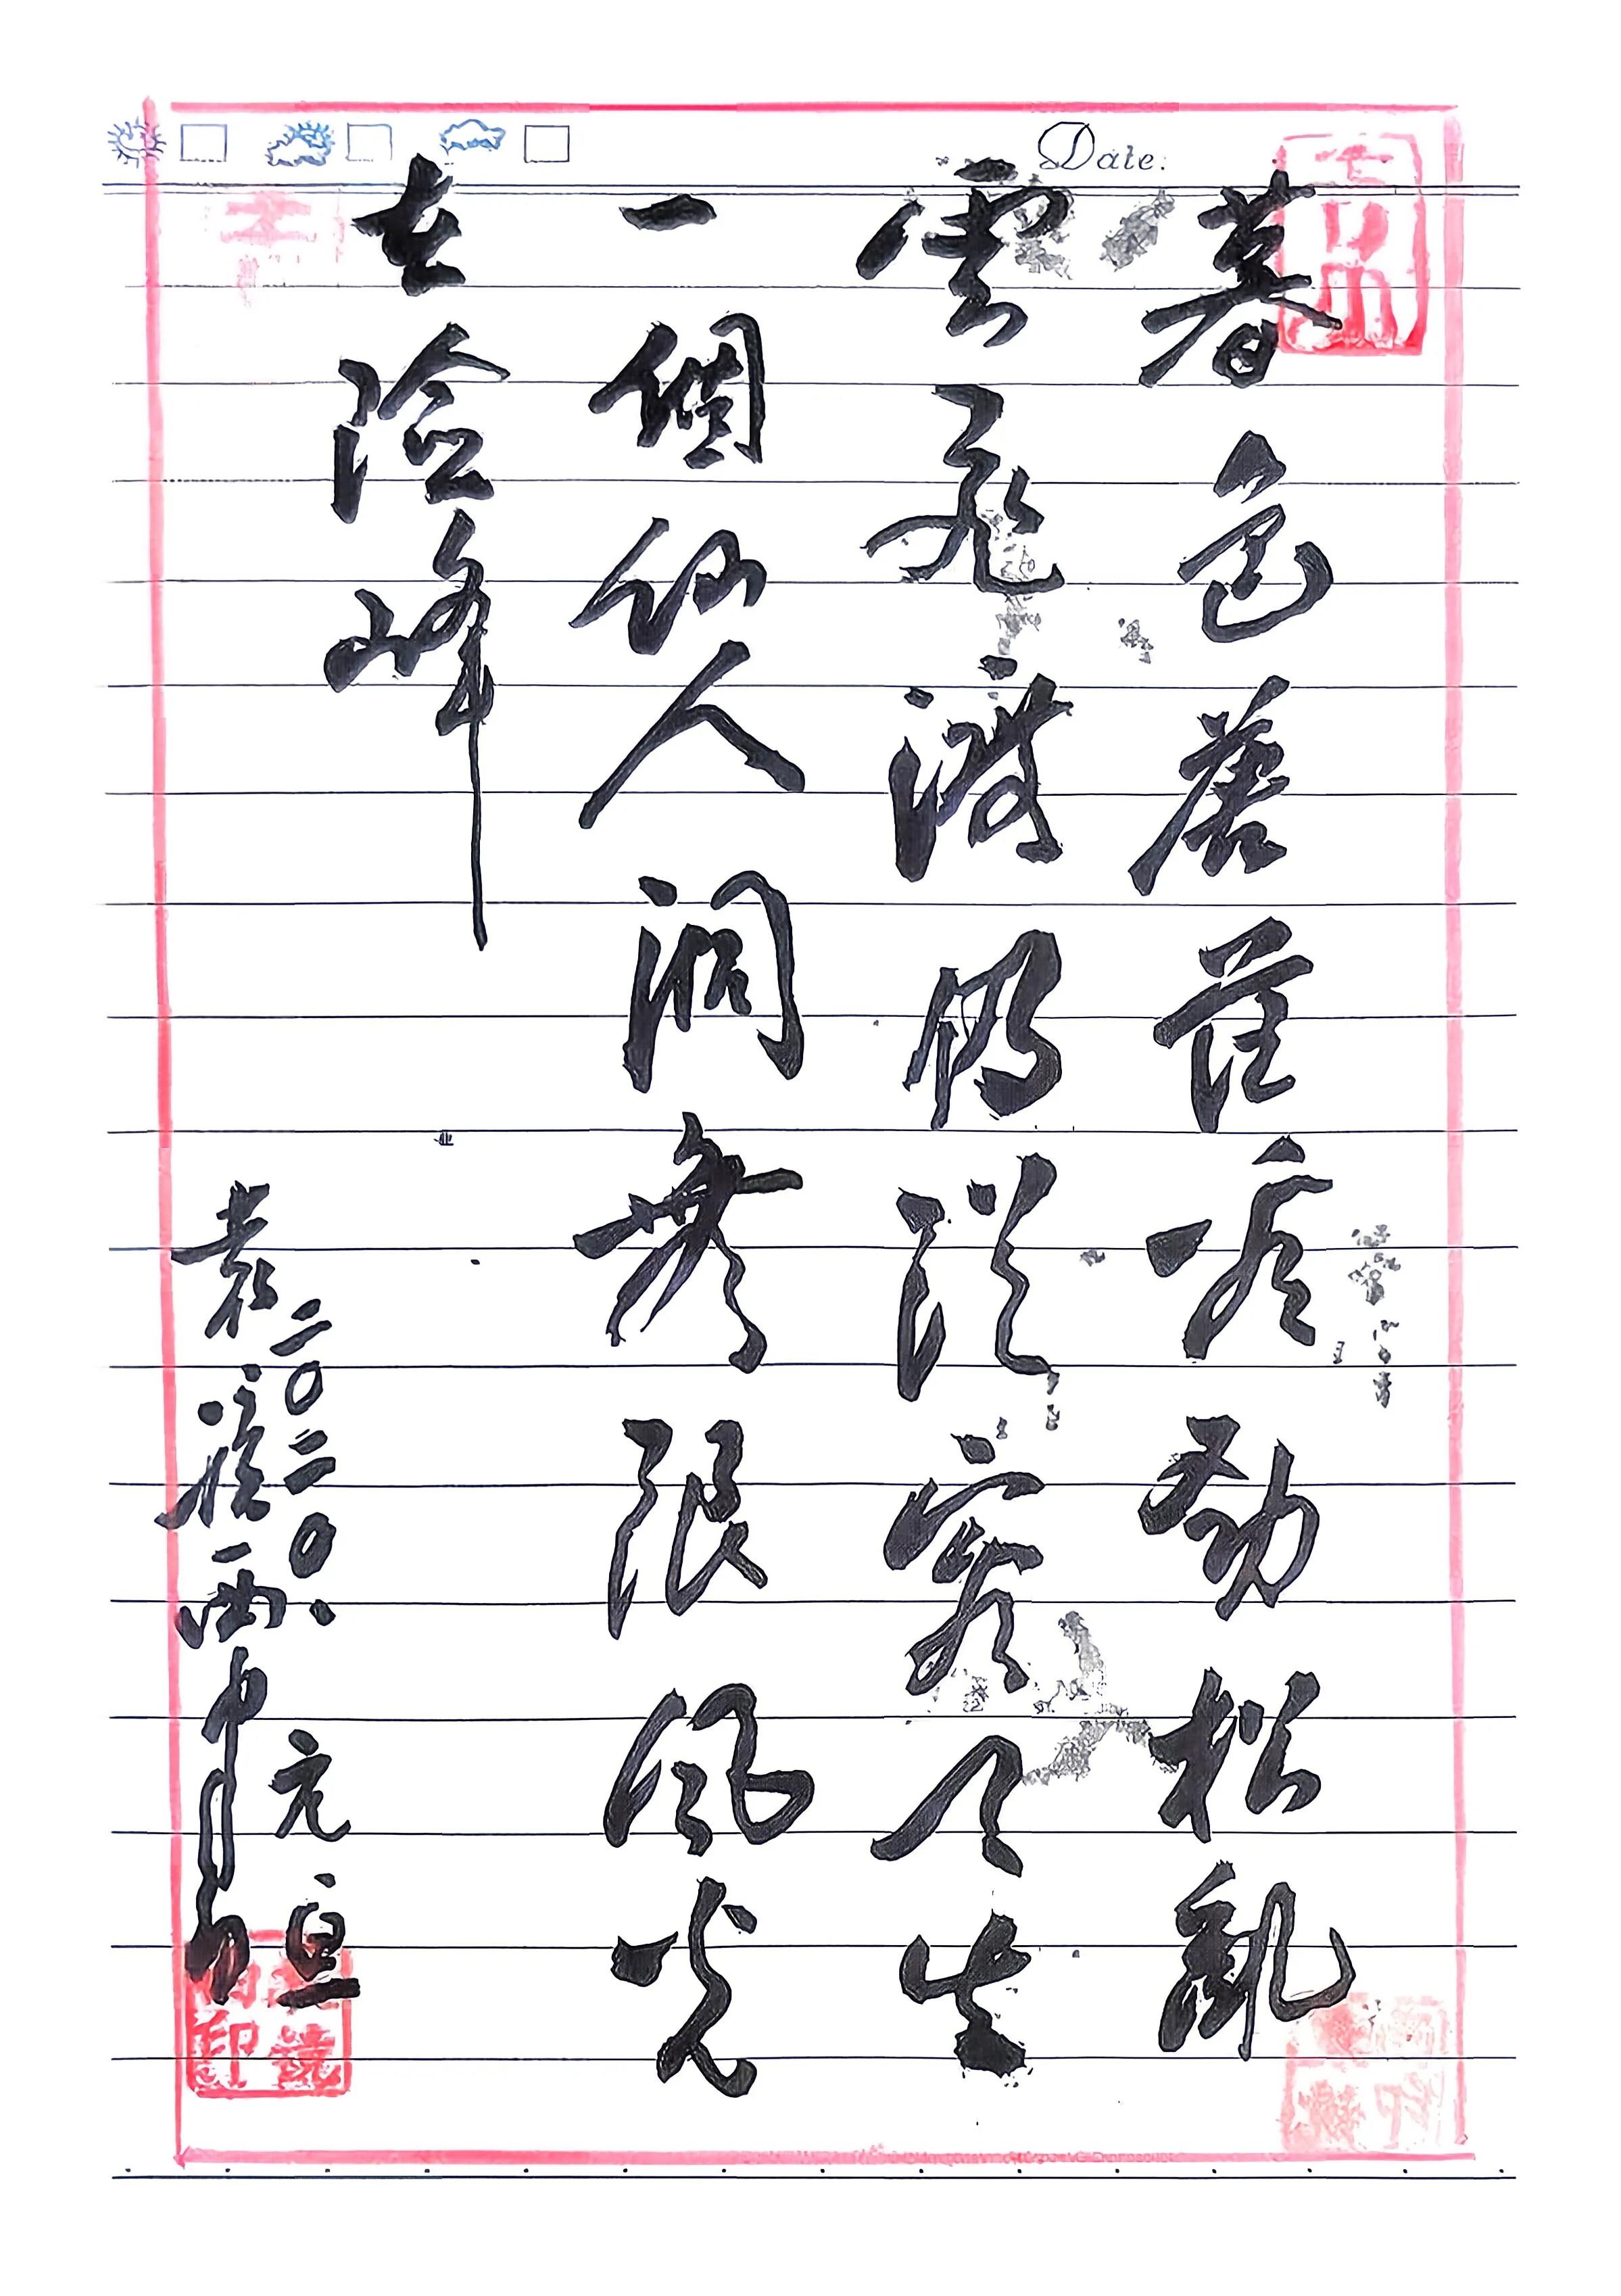 Date:
暮色蒼茫看劲松亂
雲飛渡仍從容天生
一個仙人洞無限風光
在險峰
二〇二〇.元旦
袁